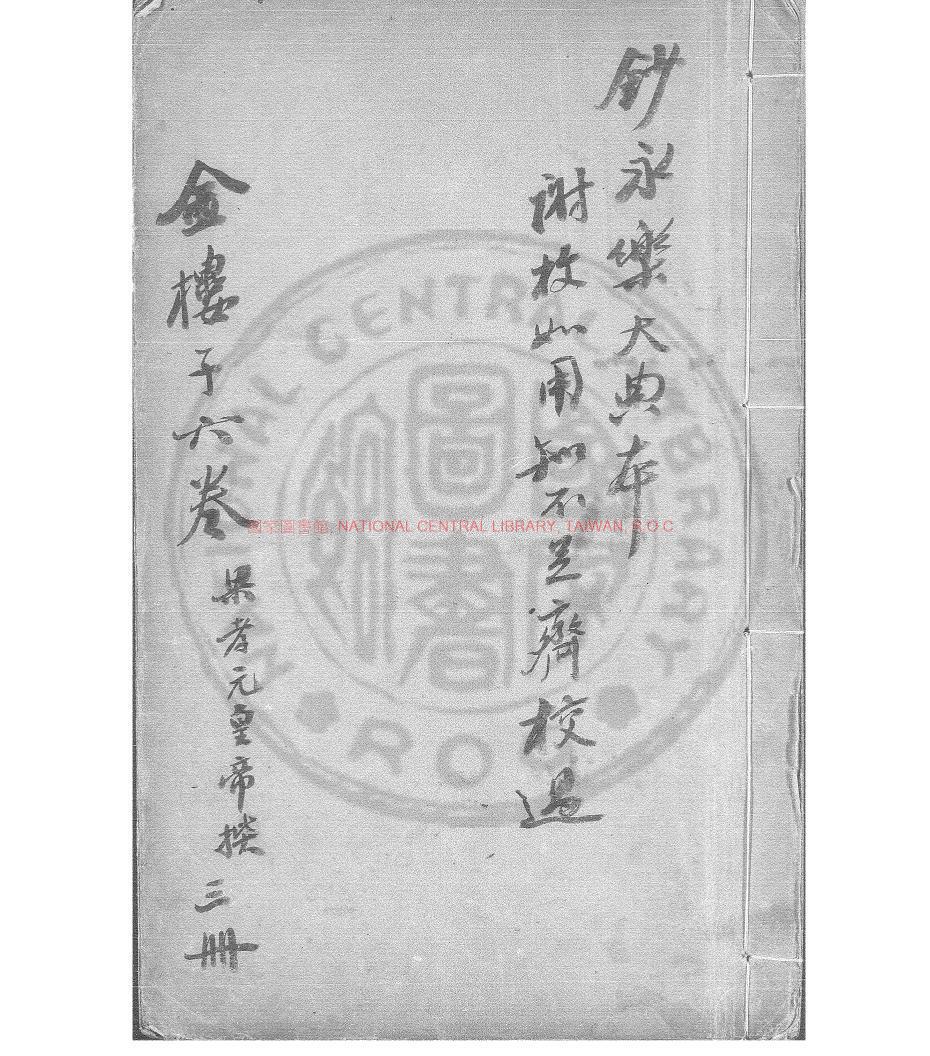 鈔永樂大典本
謝枚如用知不足齋校過
金樓子六卷 梁孝元皇帝撰 三冊
國家圖書館, NATIONAL CENTRAL LIBRARY, TAIWAN, R.O.C